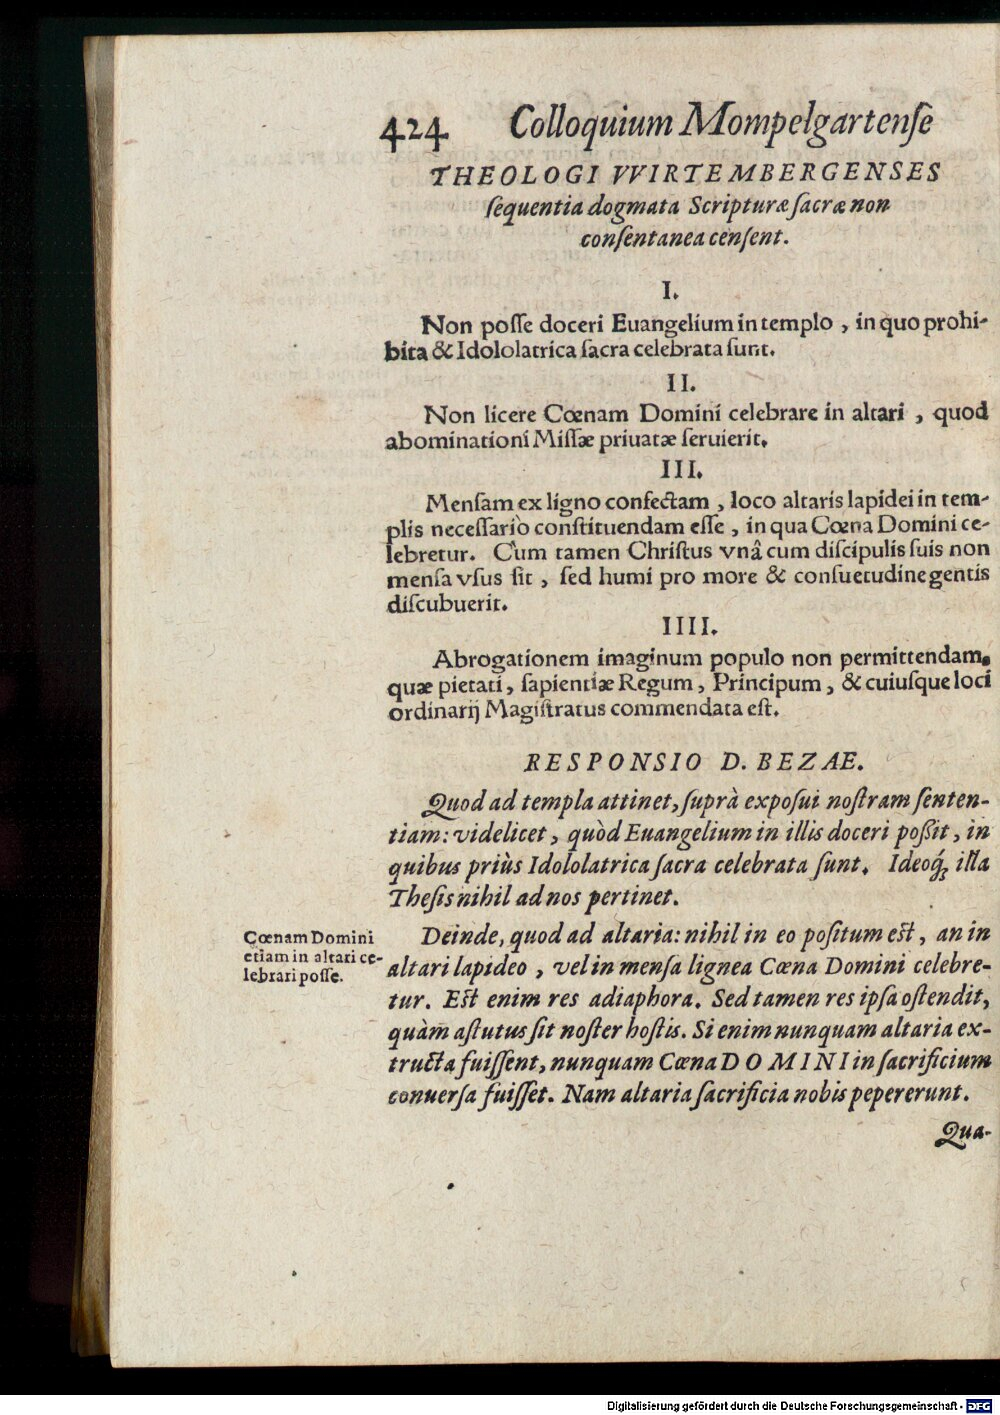 424 Colloquium Mompelgartenſe
THEOLOGI VVIRTEMBERGENSES
ſequentia dogmata Scripturæ ſacræ non
conſentanea cenſent.
I.
Non poſſe doceri Euangelium in templo, in quo prohi-
bita & Idololatrica ſacra celebrata ſunt.
II.
Non licere Cœnam Domini celebrare in altari, quod
abominationi Miſſæ priuatæ ſeruierit.
III.
Menſam ex ligno confectam, loco altaris lapidei in tem-
plis neceſſariò conſtituendam eſſe, in qua Cœna Domini ce-
lebretur. Cùm tamen Chriſtus vnâ cum diſcipulis ſuis non
menſa vſus ſit, ſed humi pro more & conſuetudine gentis
diſcubuerit.
IIII.
Abrogationem imaginum populo non permittendam.
quæ pietati, ſapientiæ Regum, Principum, & cuiuſque loci
ordinarij Magiſtratus commendata eſt.
RESPONSIO D. BEZAE.
Quod ad templa attinet, ſuprà expoſui noſtram ſenten-
tiam: videlicet, quòd Euangelium in illis doceri poßit, in
quibus priùs Idololatrica ſacra celebrata ſunt. Ideoq́; illa
Theſis nihil ad nos pertinet.
Cœnam Domini
etiam in altari ce-
lebrari poſſe.
Deinde, quod ad altaria: nihil in eo poſitum eſt, an in
altari lapideo, vel in menſa lignea Cœna Domini celebre-
tur. Eſt enim res adiaphora. Sed tamen res ipſa oſtendit,
quàm aſtutus ſit noſter hoſtis. Si enim nunquam altaria ex-
tructa fuiſſent, nunquam Cœna DOMINI in ſacrificium
conuerſa fuiſſet. Nam altaria ſacrificia nobis pepererunt.
Qua-
Digitalisierung gefördert durch die Deutsche Forschungsgemeinschaft - DFG